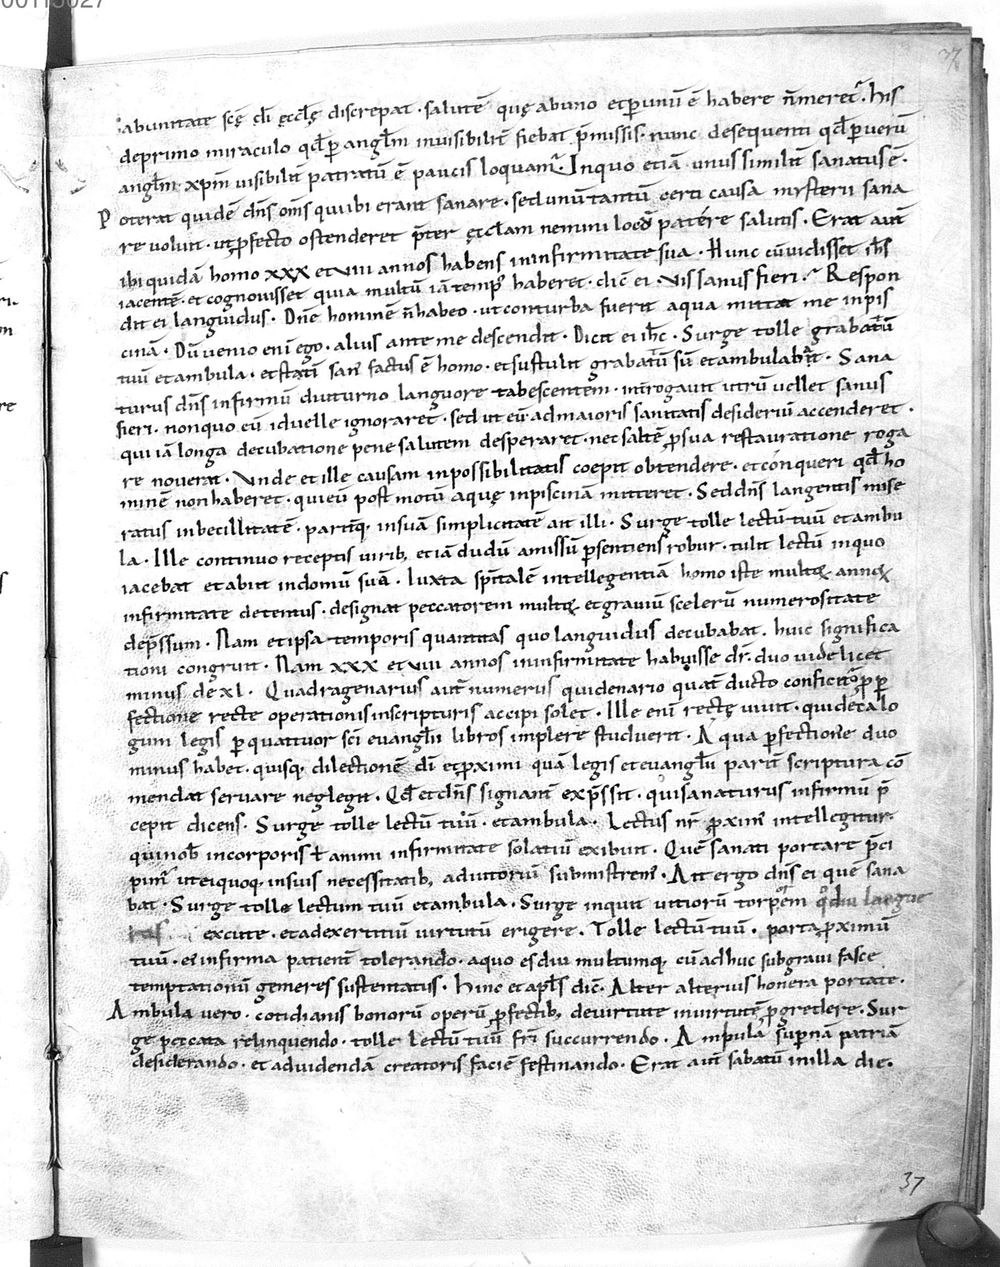 00115027
37
abunitate scę dī ęcclę discrepat · salutē quę abuno etꝑunū ē habere n̄meret᷑ · his
deprimo miraculo qd̄ ꝑ angłm inuisibilit̄ fiebat p̄missis · nunc desequenti qd̄ ꝑuerū
angłm · xp̄m uisibilit̄ patratū ē paucis loquam᷑ · Inquo etiā unus similit̄ sanatus ē ·
Poterat quidē dn̄s om̄s quiibi erant sanare · sed unū tantū certi causa mysterii sana
re uoluit · utꝓfecto ostenderet p̄ter ęcclam nemini locū patére salutis · Erat aut̄
ibi quidā homo xxx et viii annos habens ininfirmitate sua · Hunc cū uidisset ih̄s
iacentē · et cognouisset quia multū iā temp᷒ haberet · dic̄ ei · Vis sanus fieri · Respon
dit ei languidus · Dn̄e hominē n̄ habeo · ut conturba fuerit aqua mittat me inpis
cinā · Dū uenio enī ego · alius ante me descendit · Dicit ei ih̄c · Surge tolle grabatū
tuū et ambula · et statī san᷒ factus ē homo · et sustulit grabatū sū et ambulabat · Sana
turus dn̄s infirmū diuturno languore tabescentem · int̄rogauit utrū uellet sanus
fieri · non quo eū id uelle ignoraret · sed ut eū ad maioris sanitatis desideriū accenderet ·
qui iā longa decubatione pene salutem desperaret · nec saltē ꝓ sua restauratione roga
re nouerat · Vnde et ille causam inpossibilitatis coepit obtendere · et cónqueri qd̄ ho
minē non haberet · qui eū post motū aquę inpiscinā mitteret · Sed dn̄s langentis mise
ratus inbecillitatē · parūq; insuā simplicitatē ait illi · Surge tolle lectū tuū et ambu
la · Ille continuo receptis uirib; et iā dudū amissū p̄sentiens robur · tulit lectū inquo
iacebat et abiit indomū suā · Iuxta sp̄italē intellegentiā homo iste multoꝝ annoꝝ
infirmitate detentus · designat peccatorem multoꝝ et grauiū scelerū numerositate
dep̄ssum · Nam et ipsa temporis quantitas quo languidus decubabat · huic significa
tioni congruit · Nam xxx et viii annos ininfirmitate habuisse dr̄ · duo uidelicet
minus de xl · Quadragenarius aut̄ numerus qui denario quat̄ ducto conficit᷑ ꝓ ꝑ
fectione recte operationis inscripturis accipi solet · Ille enī rectę uiuit · qui decalo
gum legis ꝑ quattuor sc̄i euangłii libros implere studuerit · A qua ꝑfectione duo
minus habet · quisq; dilectionē dī et ꝓximi quā legis et euangłii parit̄ scriptura cō
mendat seruare neglegit · Qd̄ et dn̄s signant̄ exp̄ssit · qui sanaturus infirmū p̄
cepit dicens · Surge tolle lectū tuū · et ambula · Lectus nr̄ ꝓxim᷒ intellegitur ·
qui nob̄ incorporis ł animi infirmitate solatiū exibuit · Quē sanati portare p̄ci
pim᷒ ut ei quoq; insuis necessitatib; adiutoriū subministrem᷒ · Ait ergo dn̄s ei quē sana
bat · Surge tolle lectum tuū et ambula · Surge inquit uitiorū torporem quo diu langue
ras excute · et ad exertitiū uirtutū erigere · Tolle lectū tuū · porta ꝓximū
tuū · ei᷒ infirma patient̄ tolerando · a quo es diu multumq; cū adhuc sub graui fasce
temptationū gemeres sustentatus · Hinc et apłs dic̄ · Alter alterius honera portate ·
Ambula uero · cotidianis bonorū operū ꝓfectib; deuirtute in uirtutē ꝓgredere · Sur
ge peccata relinquendo · tolle lectū tuū fr̄i succurrendo · Ambula supernā patriā
desiderando · et ad uidendā creatoris faciē festinando · Erat aut̄ sabatū in illa die ·
37